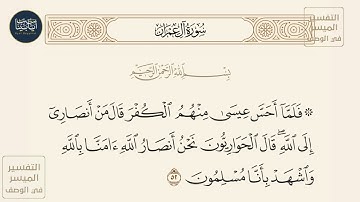 سُورَةُ آلِ عِمْرَانَ
التفسير
الميسر
في الوصف
بِسْمِ اللَّهِ الرَّحْمَٰنِ الرَّحِيمِ
۞ فَلَمَّآ أَحَسَّ عِيسَىٰ مِنْهُمُ ٱلْكُفْرَ قَالَ مَنْ أَنصَارِىٓ
إِلَى ٱللَّهِۖ قَالَ ٱلْحَوَارِيُّونَ نَحْنُ أَنصَارُ ٱللَّهِ ءَامَنَّا بِٱللَّهِ
وَٱشْهَدْ بِأَنَّا مُسْلِمُونَ ٥٢
التفسير
الميسر
في الوصف